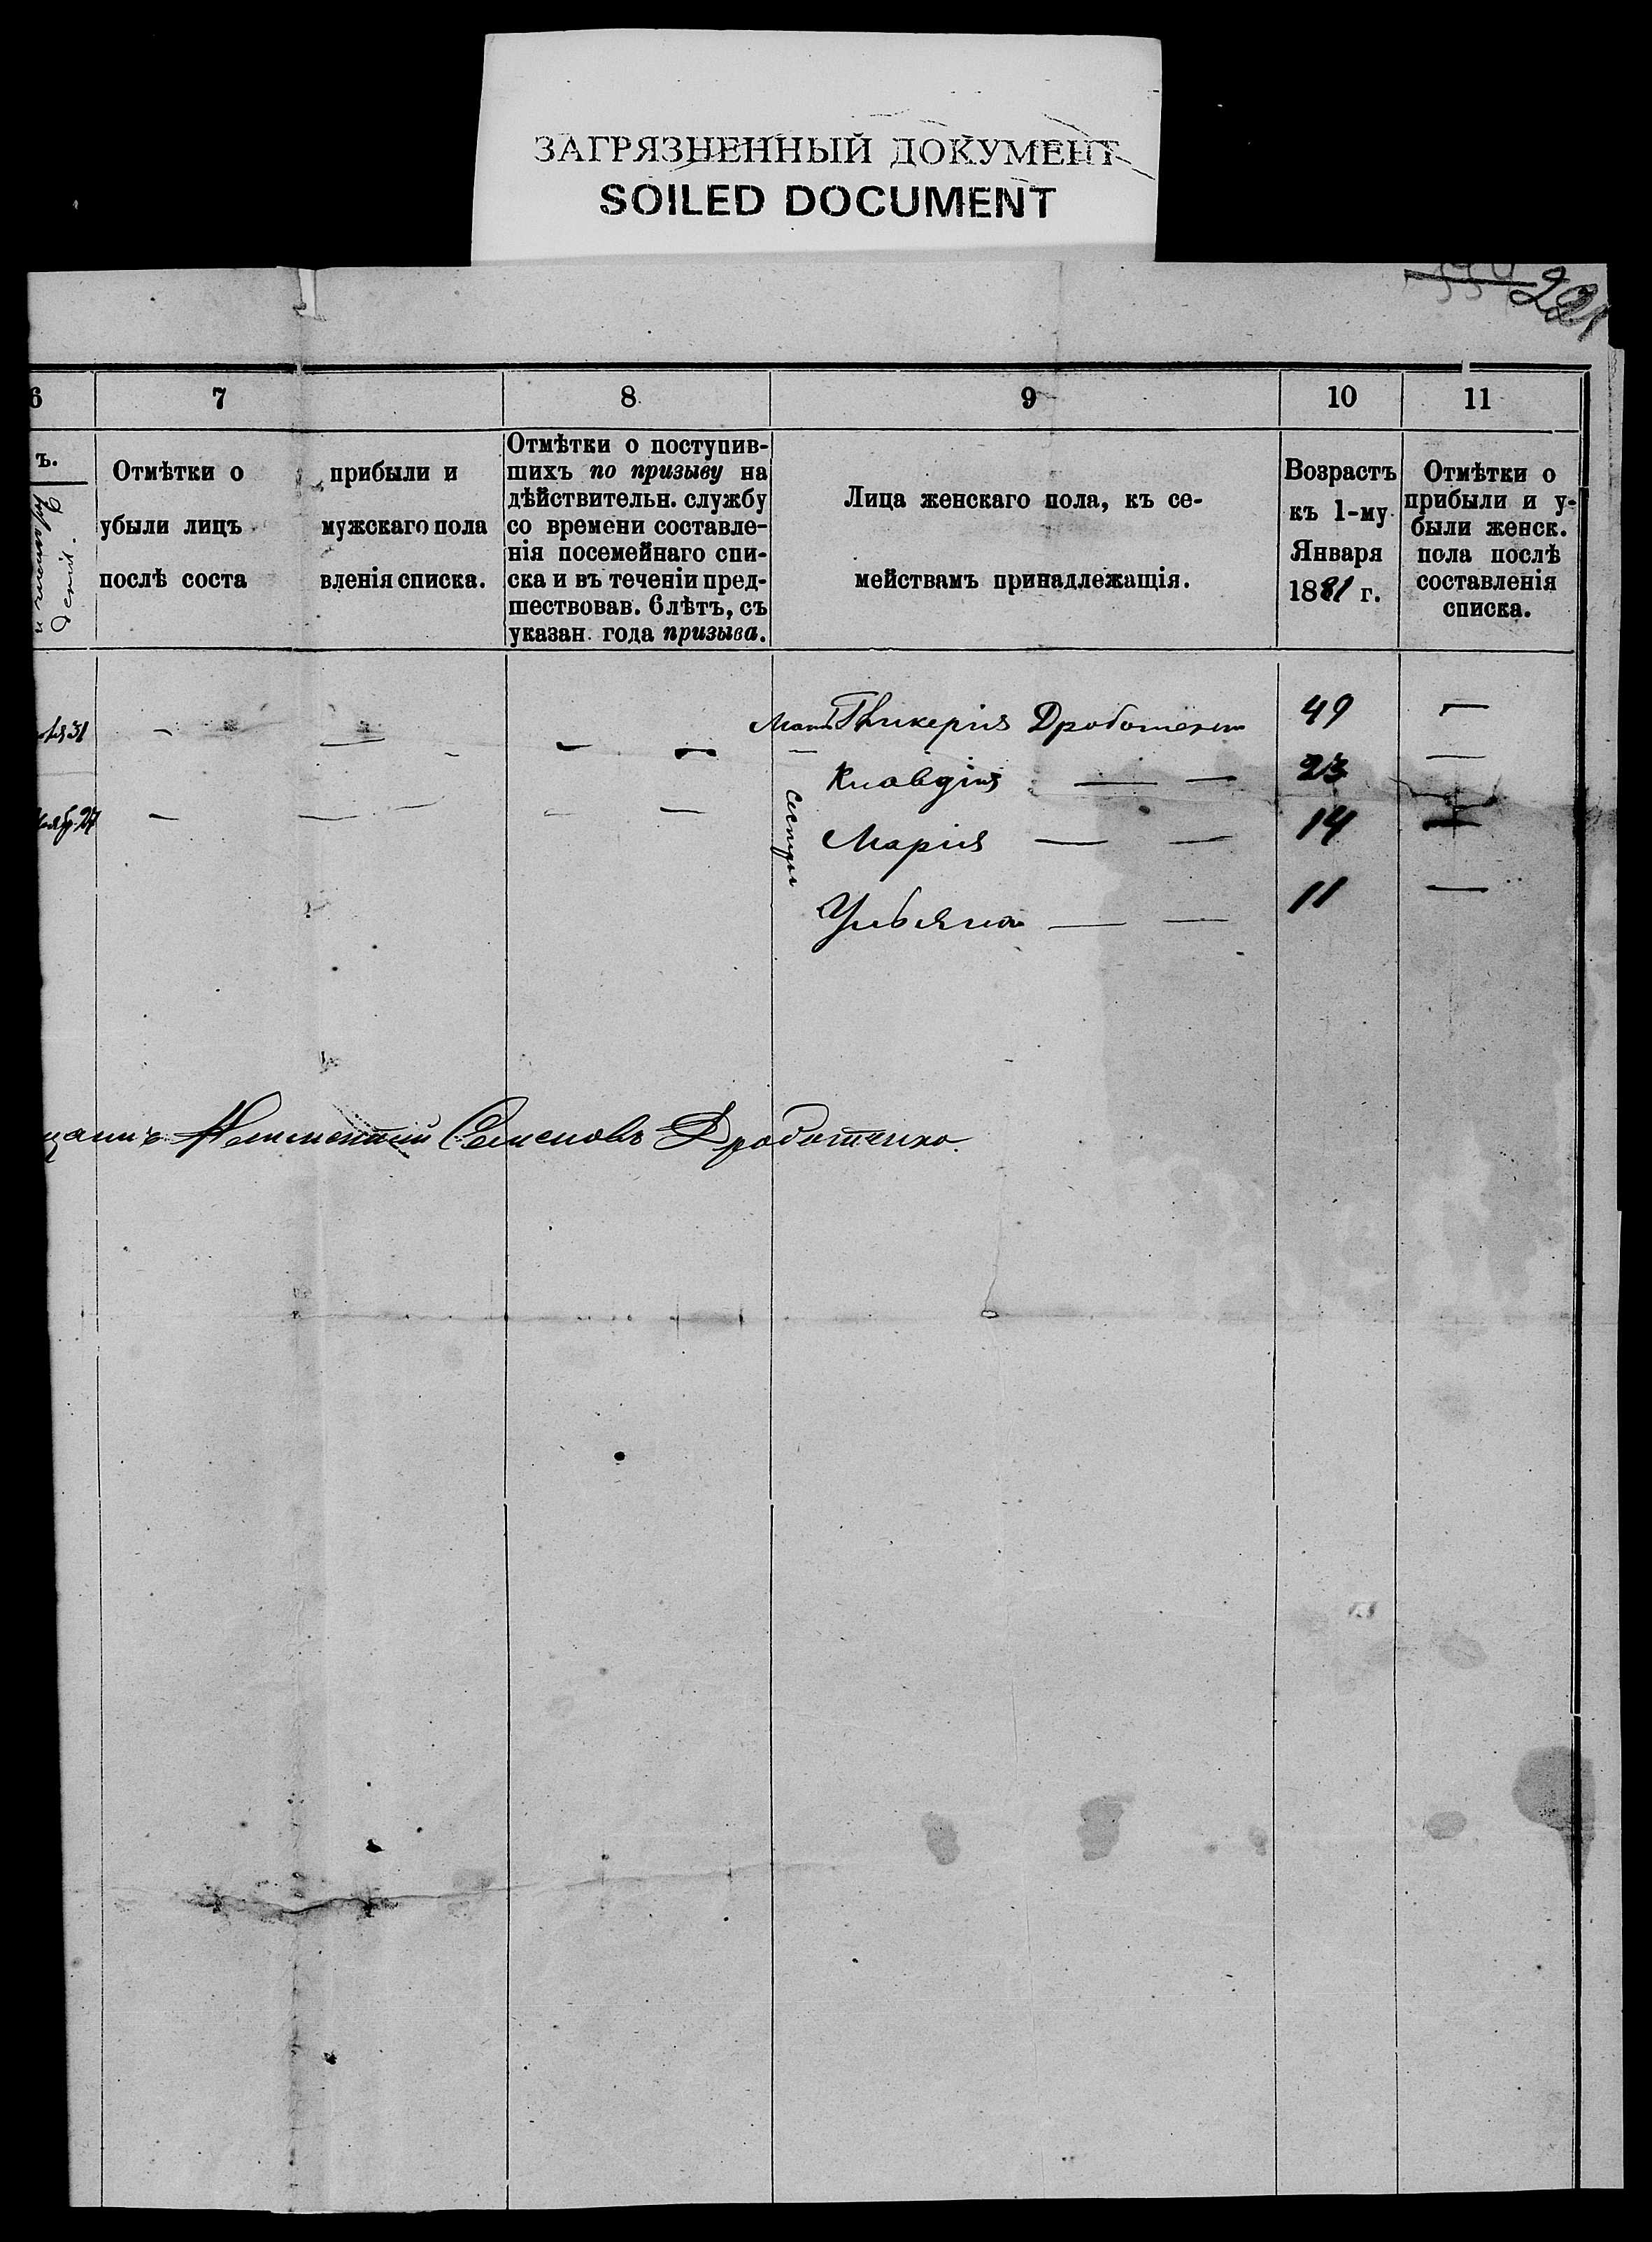 ЗАГРЯЗНЕННЫЙ ДОКУМЕНТ
SOILED DOCUMENT
221
6
7
8
9
10
11
ъ.
Отмѣтки о прибыли и
убыли лицъ мужскаго пола
послѣ соста вленія списка.
Отмѣтки о поступив-
шихъ по призыву на
дѣйствительн. службу
со времени составле-
нія посемейнаго спи-
ска и въ теченіи пред-
шествовав. 6 лѣтъ, съ
указан. года призыва.
Лица женскаго пола, къ се-
мействамъ принадлежащія.
Возрастъ
къ 1-му
Января
1881 г.
Отмѣтки о
прибыли и у-
были женск.
пола послѣ
составленія
списка.
31 — — — — Мать Гликерія Дроботенко 49 —
сестры
Клавдія — — 23 —
27 — — — — Марія — — 14 —
Ульяна — — 11 —
Семеновъ Дроботенко.